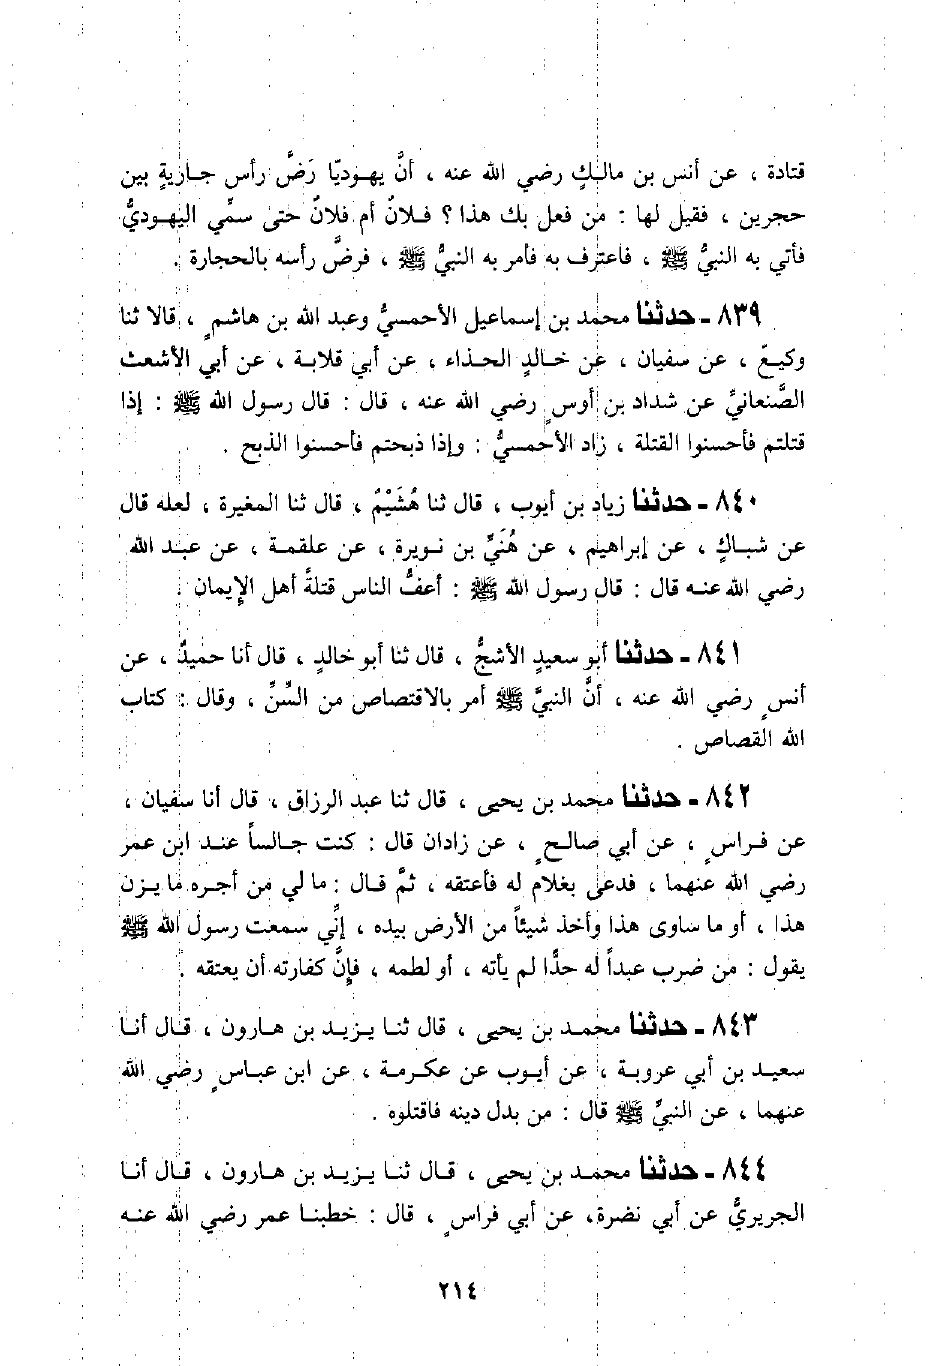 قتادة ، عن أنس بن مالكٍ رضي الله عنه ، أنَّ يهوديّا رَضَّ رأس جاريةٍ بين
حجرين ، فقيل لها : من فعل بك هذا ؟ فلانٌ أم فلانٌ حتى سمِّي اليهوديُّ
فأتي به النبيُّ ﷺ ، فاعترف به فأمر به النبيُّ ﷺ ، فرضَّ رأسه بالحجارة .
٨٣٩ - حدثنا محمد بن إسماعيل الأحمسيُّ وعبد الله بن هاشمٍ ، قالا ثنا
وكيعٌ ، عن سفيان ، عن خالدٍ الحذاء ، عن أبي قلابة ، عن أبي الأشعث
الصَّنعانيِّ عن شداد بن أوسٍ رضي الله عنه ، قال : قال رسول الله ﷺ : إذا
قتلتم فأحسنوا القتلة ، زاد الأحمسيُّ : وإذا ذبحتم فأحسنوا الذبح .
٨٤٠ - حدثنا زياد بن أيوب ، قال ثنا هُشَيْمٌ ، قال ثنا المغيرة ، لعله قال
عن شباكٍ ، عن إبراهيم ، عن هُنَيِّ بن نويرة ، عن علقمة ، عن عبد الله
رضي الله عنه قال : قال رسول الله ﷺ : أعفُّ الناس قتلةً أهل الإيمان .
٨٤١ - حدثنا أبو سعيدٍ الأشجُّ ، قال ثنا أبو خالدٍ ، قال أنا حميدٌ ، عن
أنسٍ رضي الله عنه ، أنَّ النبيَّ ﷺ أمر بالاقتصاص من السِّنِّ ، وقال : كتاب
الله القصاص .
٨٤٢ - حدثنا محمد بن يحيى ، قال ثنا عبد الرزاق ، قال أنا سفيان ،
عن فراسٍ ، عن أبي صالحٍ ، عن زادان قال : كنت جالساً عند ابن عمر
رضي الله عنهما ، فدعى بغلام له فأعتقه ، ثمَّ قال : ما لي من أجره ما يزن
هذا ، أو ما ساوى هذا وأخذ شيئاً من الأرض بيده ، إنِّي سمعت رسول الله ﷺ
يقول : من ضرب عبداً له حدًّا لم يأته ، أو لطمه ، فإنَّ كفارته أن يعتقه .
٨٤٣ - حدثنا محمد بن يحيى ، قال ثنا يزيد بن هارون ، قال أنا
سعيد بن أبي عروبة ، عن أيوب عن عكرمة ، عن ابن عباسٍ رضي الله
عنهما ، عن النبيِّ ﷺ قال : من بدل دينه فاقتلوه .
٨٤٤ - حدثنا محمد بن يحيى ، قال ثنا يزيد بن هارون ، قال أنا
الجريريُّ عن أبي نضرة، عن أبي فراسٍ ، قال : خطبنا عمر رضي الله عنه
٢١٤